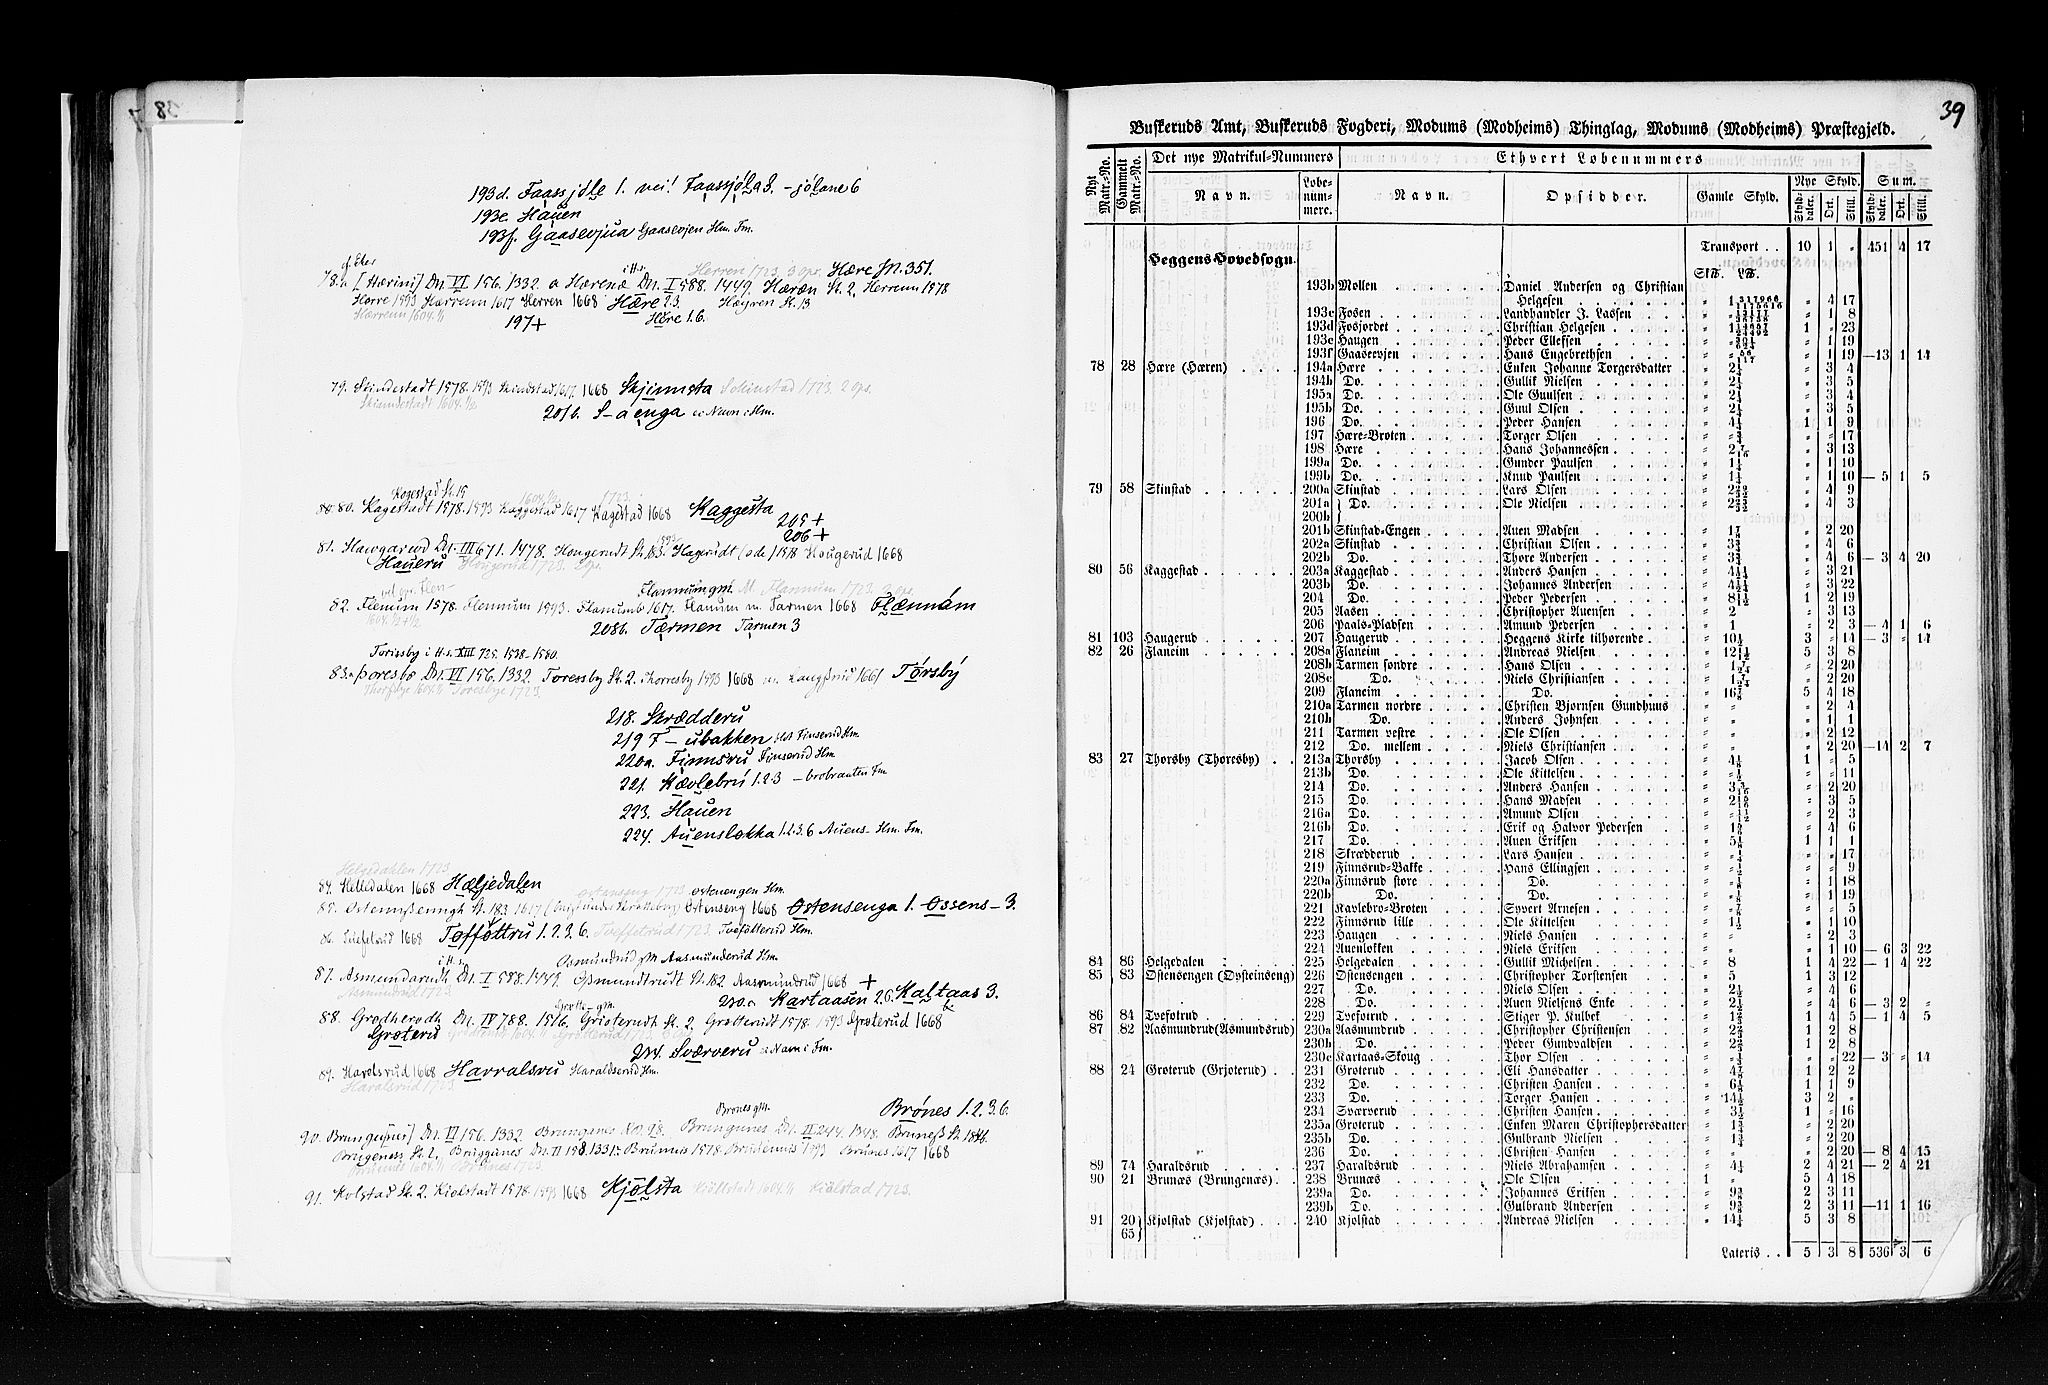 38
193d. Faassjøle 1. vei! Faassjøla 3. - jølane 6
193e. Hauen
193f. Gaasevjua Gaasevjen Hm. Fm.
Herren 1723. 3 gpr. Hære JN. 351.
78. [Hærini] Dn. VI 156. 1332. a Hærenæ Dn. I 588. 1449. Hæræn St. 2. Herrum 1578
Horre 1593 Harrum 1617 Herren 1668 Hære 2.3. Høgren St. 13
Hærrenn 1604. 1/1
197+
Hære 1.6.
79. Skindestadt 1578. 1593 Skindstad 1617. 1668 Skjinnsta Schinstad 1723. 2 gpr.
Skiendestadt 1604. 1/1
201b. S-aenga
Kogestad St. 19
80. Kagestadt 1578. 1593 Kaggestad 1617 Kagestad 1668 Kaggesta
205+
206+
81. Hawgarud Dn. III 671. 1478. Hougerudt St. 183. Hagerudt 1578 Hougerud 1668
Haueru Hougerud 1723. 2 gpr.
82. Flenum 1578. Flennum 1593. Flanumb 1617. Flanum m. Tarmen 1668 Flænnám
208b. Tærmen Tarmen 3
Torissby i H.s. XIII 725. 1528-1580.
83. Þoresbø Dn. VI 156. 1332. Toressby St. 2. Thorresby 1593 1668 m. Langßrud 1661 Tørsbý
Toresbye 1723.
218. Skrædderu
219 F-ubakken
220a. Finnsru Finserud Hm.
221. Kævlebrú 1.2.3 - brobraaten Fm
223. Hauen
224. Auensløkka 1.2.3.6 Auens- Hm. Fm.
Helgedahlen 1723.
84. Helledalen 1668 Hæljedalen
Østenseng 1723 Østenengen Hm.
85. Østennßenngh St. 183 1617 Østenseng 1668 Østensenga 1. Øssens- 3.
86. Tuefetrud 1668 Tøfføttru 1.2.3.6. Tveffetrud 1723. Tveføtterud Hm.
Osmundrud gM. Aasmunderud Hm.
87. Asmundarudh Dn. I 588. 1449. Osmundtrudt St. 182. Aasmunderud 1668 +
Asmundrud 1723
230.c Kartaasen 2.6. Kaltaas 3.
88. Grødherødh Dn. IV 788. 1516. Grioterudt St. 2. Grøtterudt 1578. 1593 Groterud 1668
Grøteru
234. Sværveru
89. Harolsrud 1668 Harralsru Haraldserud Hm.
Haralsrud 1723.
Brønes gM. Brønes 1.2.3.6.
90. Brunge[nes] Dn. VI 156. 1332. Brunganes Brungunes Dn. II 244. 1348. Bruneß St. 184b.
Brugeness St. 2. Bruggunes Dn. II 158. 1331. Brumnis 1578. Brudennis 1593 Brunes 1617 1668
91. Kolstad St. 2. Kiolstadt 1578. 1593 1668 Kjølsta Kiollstadt 1604. 1/1 Kiolstad 1723.
39
Buskeruds Amt, Buskeruds Fogderi, Modums (Modheims) Thinglag, Modums (Modheims) Præstegjeld.
Nyt Matr.-No. Gammelt Matr.-No. Det nye Matrikul-Nummers Ethvert Løbenummers
Navn. Løbenummere. Navn. Opsidder. Gamle Skyld. Nye Skyld. Sum.
Skylddaler. Ort. Skill. Skylddaler. Ort. Skill.
Transport . . 10 1 " 451 4 17
Heggens Hovedsogn.
Sk℔. L℔.
193b Mollen Daniel Andersen og Christian
Helgesen " 4 17
193c Fosen Landhandler J. Lassen " 1 8
193d Fosjordet Christian Helgesen 1 " 23
193e Haugen Peder Ellefsen " 1 19
193f Gaasevjen Hans Engebrethsen " 1 19 —13 1 14
78 28 Hære (Hæren) 194a Hære Enken Johanne Torgersdatter " 2¼ " 3 4
194b Do. Gullik Nielsen " 2¼ " 3 5
195a Do. Ole Guulsen " 2¼ " 3 4
195b Do. Guul Olsen " 2¼ " 3 5
196 Do. Peder Hansen " 4½ 1 1 9
197 Hære-Broten Torger Olsen " ¾ " " 17
198 Hære Hans Johannessen " 2 7/16 " 3 13
199a Do. Gunder Paulsen " 1¼ " 1 10
199b Do. Knud Paulsen " 1¼ " 1 10 — 5 1 5
79 58 Skinstad 200a Skinstad Lars Olsen " 4 9
201a Do. Ole Nielsen " 4 3
200b
201b Skinstad-Engen Auen Madsen " 2 20
202a Skinstad Christian Olsen " 3¾ " 4 6
202b Do. Thore Andersen " 3¾ " 4 6 — 3 4 20
80 56 Kaggestad 203a Kaggestad Anders Hansen " 3 21
203b Do. Johannes Andersen " 3 22
204 Do. Peder Pedersen 1 2 19
205 Aasen Christopher Auensen " 2 " 3 13
206 Paals-Pladsen Amund Pedersen " 1 " 2 3 — 4 1 6
81 103 Haugerud 207 Haugerud Heggens Kirke tilhørende " 10½ 3 " 14 — 3 " 14
82 26 Flaneim 208a Flaneim Andreas Nielsen 5 3 8
208b Tarmen søndre Hans Olsen " 2 20
208c Do. Niels Christiansen " 2 20
209 Flaneim Do. " 16⅞ 5 4 18
210a Tarmen nordre Christen Bjørnsen Gundhuus " " " 2 4
210b Do. Anders Johnsen " " " 1 1
211 Tarmen vestre Ole Olsen " " " 2 12
212 Do. mellem Niels Christiansen " " " 2 20 —14 2 7
83 27 Thorsby (Thoresby) 213a Thorsby Jacob Olsen " 4⅛ 1 " 5
213b Do. Ole Kittelsen " ½ " " 11
214 Do. Anders Hansen " 2 20
215 Do. Hans Madsen " 3 5
216a Do. Amund Olsen " 2 3
216b Do. Erik og Halvor Pedersen " 4 6
217 Do. Auen Eriksen " 5⅛ 1 1 1
218 Skrædderud Lars Hansen " ¼ " " 17
219 Finnsrud-Bakke Hans Ellingsen " " 9
220a Finnsrud store Do. " 1 18
220b Do. Do. " 1 19
221 Kavlebro-Broten Syvert Arnesen " " 5
222 Finnsrud lille Ole Kittelsen " 1½ " 1 10
223 Haugen Niels Hansen " " " 2 3
224 Auenløkken Niels Eriksen " " " 1 10 — 6 3 22
84 86 Helgedalen 225 Helgedalen Gullik Michelsen " 8 1 4 22 — 1 4 22
85 83 Østensengen (Øysteinseng) 226 Østensengen Christopher Torstensen " 5 1 3 12
227 Do. Niels Olsen " 2½ " 4 6
228 Do. Auen Nielsens Enke " 2½ " 4 6 — 3 2 "
86 84 Tveføtrud 229 Tveføtrud Stiger P. Kulbek 1 4 5 — 1 4 5
87 82 Aasmundrud(Asmundsrud) 230a Aasmundrud Christopher Christensen " 2⅔ 1 2 8
230b Do. Peder Gundvaldsen " 2⅔ 1 2 8
230c Kartaas-Skoug Thor Olsen " " 22 — 3 " 14
88 24 Groterud (Grjoterud) 231 Groterud Eli Hansdatter " 4⅞ 1 2 2
232 Do. Christen Hansen " 6⅛ 1 1 9
233 Do. Torger Hansen " 14½ 3 2 "
234 Sværverud Christen Hansen " 3½ 1 " 16
235a Groterud Enken Maren Christophersdatter " 1¾ " 2 20
235b Do. Gulbrand Nielsen " 1¾ " 2 20
236 Do. Christen Hansen " 2 20 — 8 4 15
89 74 Haraldsrud 237 Haraldsrud Niels Abrahamsen " 4½ 2 4 21 — 2 4 21
90 21 Brunæs (Brungenæs) 238 Brunæs Ole Olsen 1 " 5 4 18
239a Do. Johannes Eriksen " 2 3 11
239b Do. Gulbrand Andersen " 2 3 11 —11 1 16
91 20 Kjolstad (Kjølstad) 240 Kjolstad Andreas Nielsen " 14¼ 5 3 8
65
Lateris . . 5 3 8 536 3 6